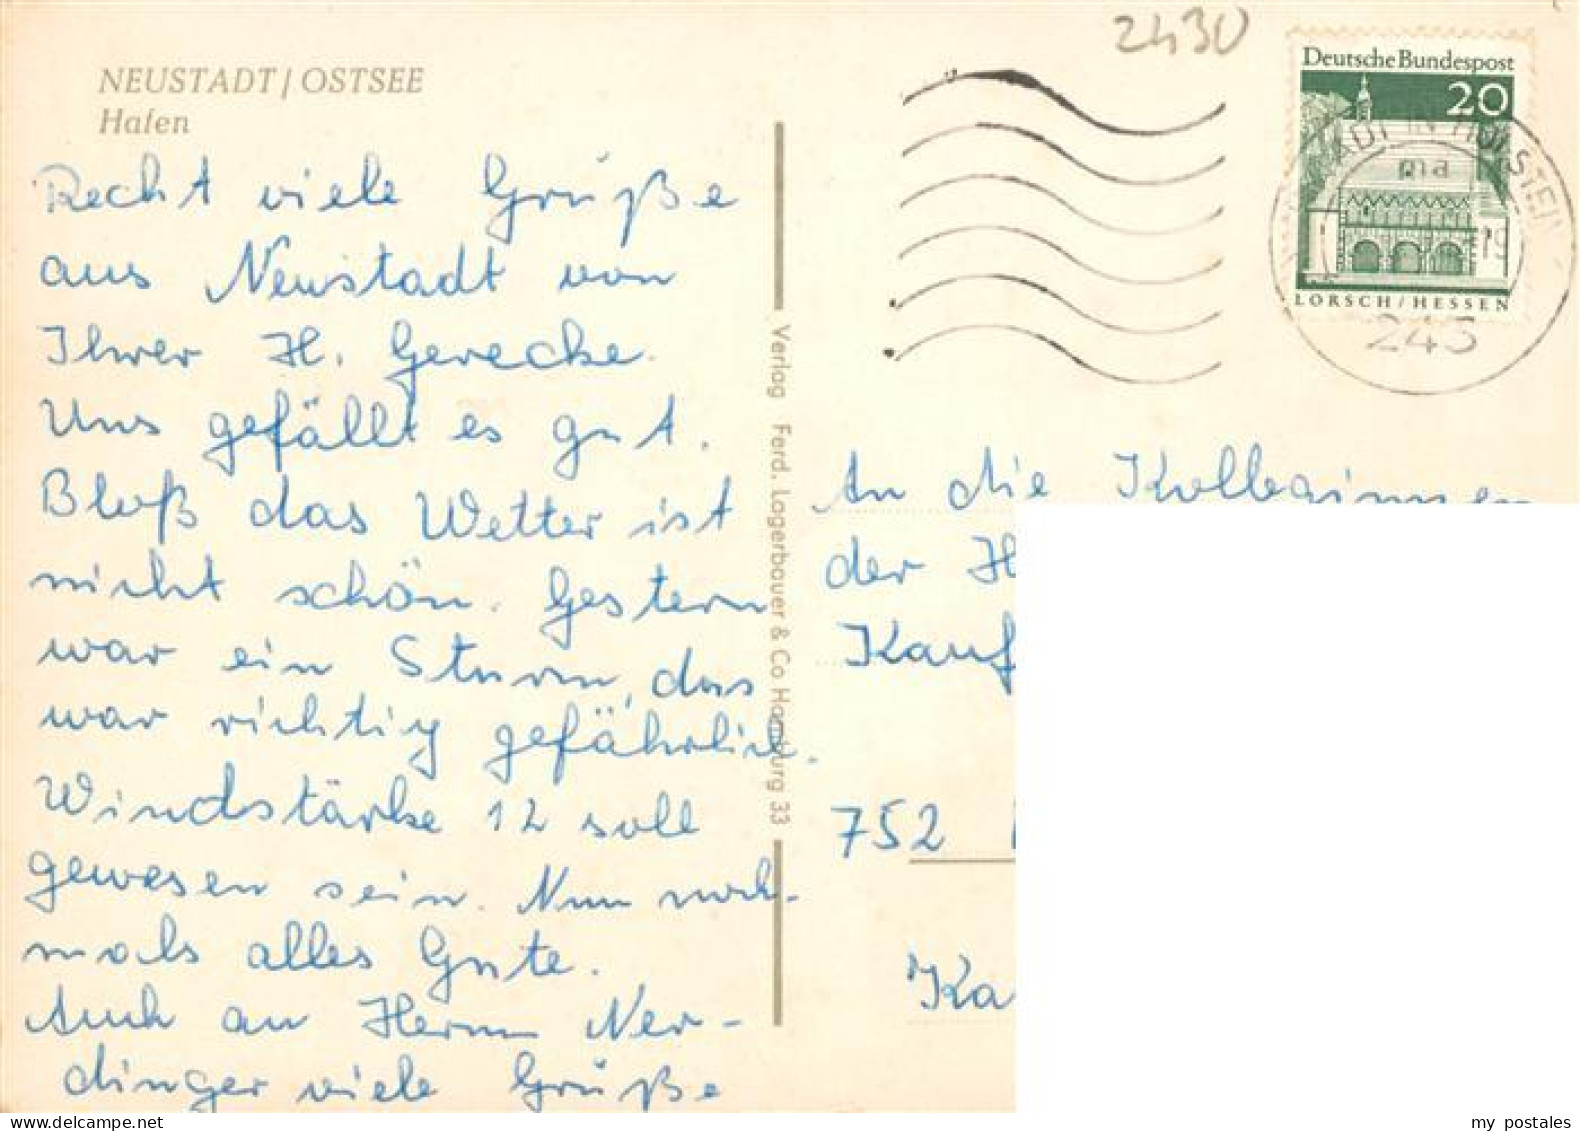 NEUSTADT / OSTSEE
Hafen
Recht viele Grüße
aus Neustadt von
Ihrer H. Gerecke.
Uns gefällt es gut.
Bloß das Wetter ist
nicht schön. Gestern
war ein Sturm, das
war richtig gefährlich.
Windstärke 12 soll
gewesen sein. Nun noch-
mals alles Gute.
Auch an Herrn Ner-
dinger viele Grüße
Verlag Ferd. Lagerbauer & Co Hamburg 33
2430
Deutsche Bundespost
20
LORSCH / HESSEN
ADT IN HOLSTEIN
ma
19
243
An die Kolleginnen
der H
Kauf
752
Ka
my postales